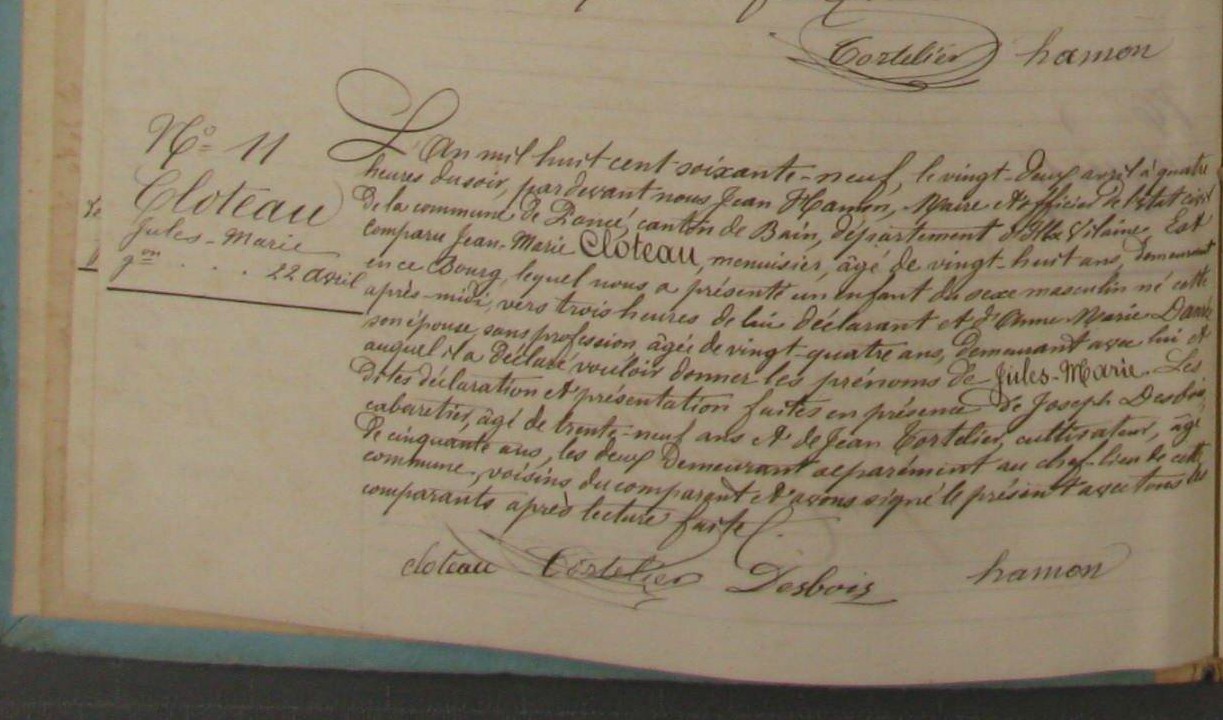 Cortelier hamon
N° 11
Cloteau
Jules-Marie
22 avril
L'An mil huit cent soixante-neuf, le vingt-deux avril à quatre
heures du soir, par devant nous Jean Hamon, Maire et officier de l'état civil
de la commune de Pancé, canton de Bain, département d'Ille & Vilaine, Est
comparu Jean-Marie Cloteau, menuisier, âgé de vingt-huit ans, demeurant
en ce Bourg, lequel nous a présenté un enfant du sexe masculin né cette
après-midi, vers trois heures de lui déclarant et d'Anne Marie
son épouse, sans profession, âgée de vingt-quatre ans, demeurant avec lui et
auquel il a déclaré vouloir donner les prénoms de Jules-Marie. Les
dites déclaration et présentation faites en présence de Joseph Desbois,
cabaretier, âgé de trente-neuf ans et de Jean Cortelier, cultivateur, âgé
de cinquante ans, les deux demeurant séparément au chef-lieu de cette
commune, voisins du comparant et avons signé le présent avec tous les
comparants après lecture faite.
cloteau Cortelier Desbois hamon